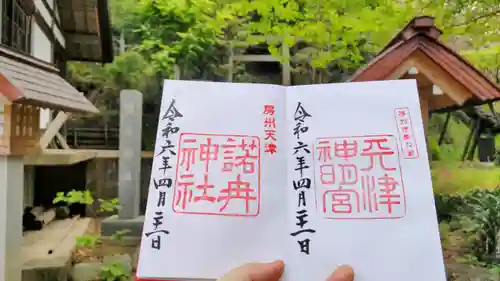 天津
神明宮
令和六年四月二十一日
房州天津
諾冉
神社
令和六年四月二十一日